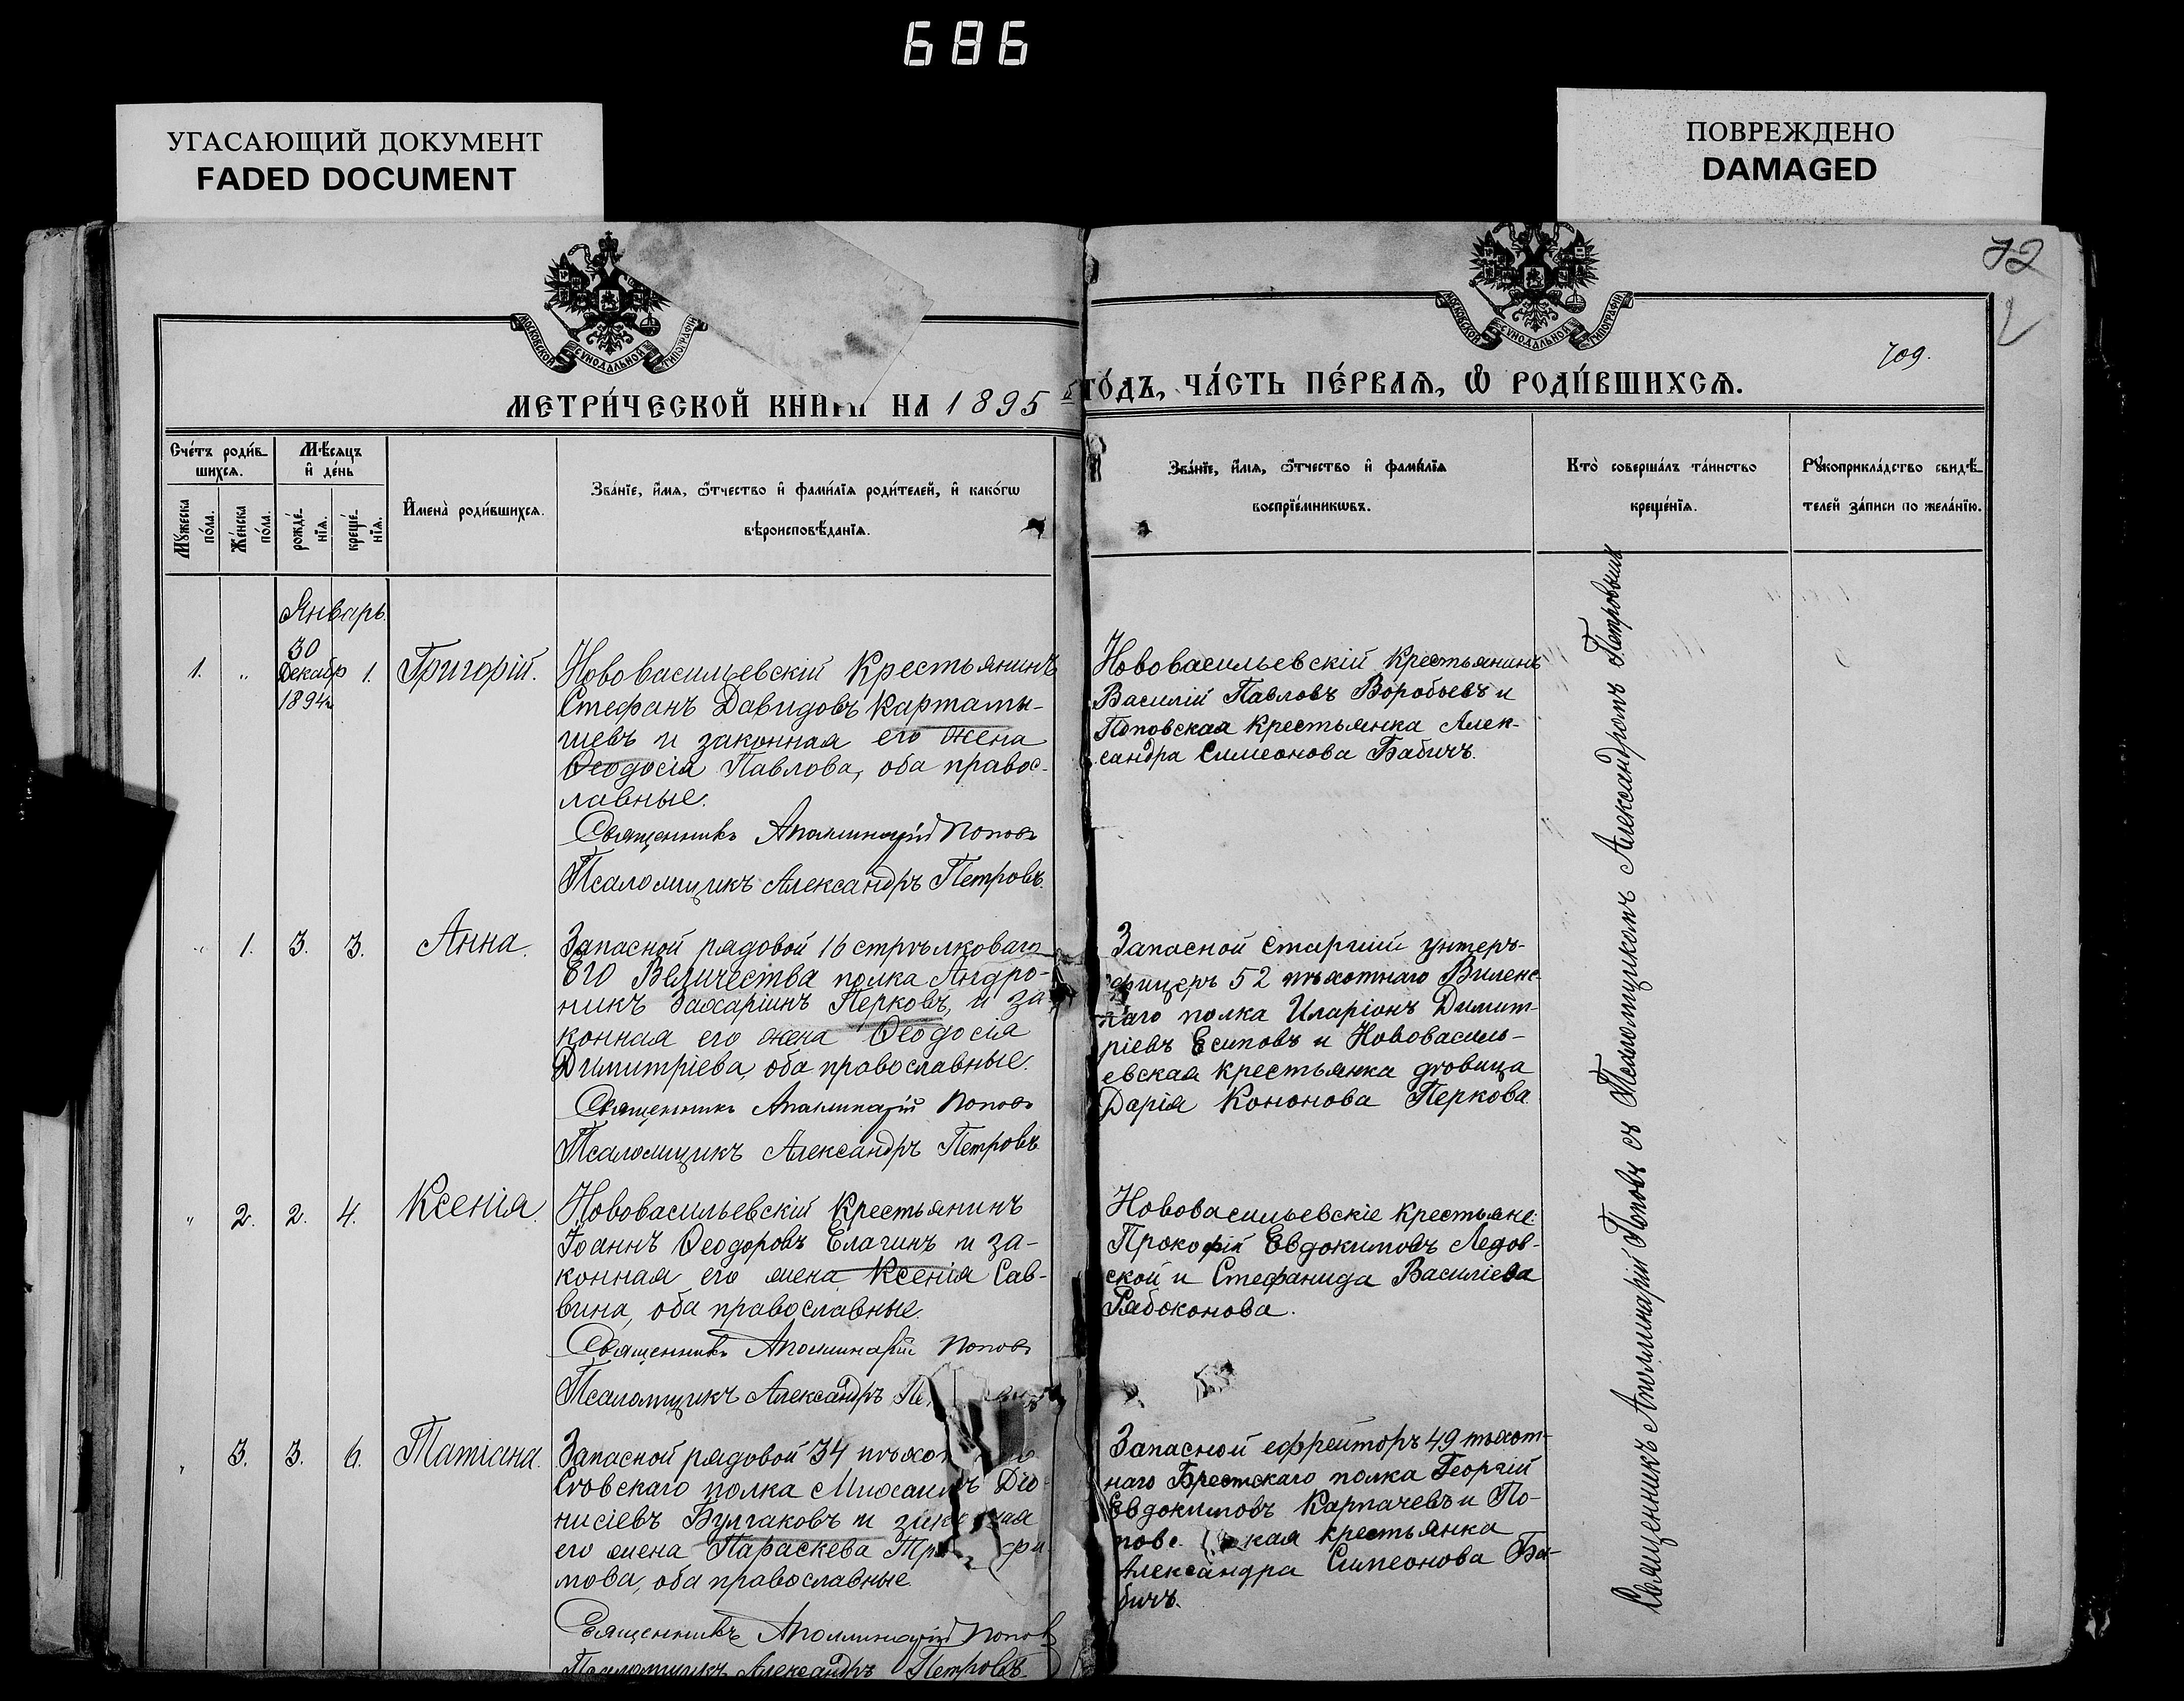 686
УГАСАЮЩИЙ ДОКУМЕНТ
FADED DOCUMENT
ПОВРЕЖДЕНО
DAMAGED
72
709.
МОСКОВСКОЙ СѴНОДАЛЬНОЙ ТИПОГРАФІИ
МОСКОВСКОЙ СѴНОДАЛЬНОЙ ТИПОГРАФІИ
МЕТРИ́ЧЕСКОЙ КНИГИ НА 1895 й
ГО́ДЪ, ЧА́СТЬ ПЕ́РВАѦ, Ѡ҆ РОДИ́ВШИХСѦ.
Сче́тъ роди́в-
шихсѧ.
Мѣ́сѧцъ
и҆ де́нь
Мꙋ́жеска
по́ла.
Же́нска
по́ла.
рожде́-
нїѧ.
креще́-
нїѧ.
И҆мена̀ роди́вшихсѧ.
Зва́нїе, и҆́мѧ, ѻ҆́тчество и҆ фами́лїѧ роди́телей, и҆ како́гѡ
вѣроисповѣ́данїѧ.
Зва́нїе, и҆́мѧ, ѻ҆́тчество и҆ фами́лїѧ
воспрїе́мникѡвъ.
Кто̀ соверша́лъ та́инство
креще́нїѧ.
Рꙋкоприкла́дство свидѣ́-
телей за́писи по жела́нїю.
Январь.
1. „ 30 Декабр 1894 г. 1. Григорій.
Нововасильевскій Крестьянинъ
Стефанъ Давидовъ Картамы-
шевъ и законная его жена
Ѳеодосія Павлова, оба правос-
лавные.
Священникъ Аполлинарій Поповъ
Псаломщикъ Александръ Петровъ.
Нововасильевскій Крестьянинъ
Василій Павловъ Воробьевъ и
Поповская Крестьянка Алек-
сандра Симеонова Бабичъ.
„ 1. 3. 3. Анна.
Запасной рядовой 16 стрѣлковаго
ЕГО Величества полка Андро-
никъ Захаріинъ Перковъ, и за-
конная его жена Ѳеодосія
Димитріева, оба православные.
Священникъ Аполлинарій Поповъ
Псаломщикъ Александръ Петровъ.
Запасной старшій унтеръ-
офицеръ 52 пѣхотнаго Виленс-
каго полка Иларіонъ Димит-
ріевъ Есиповъ и Нововасиль-
евская крестьянка дѣвица
Дарія Кононова Перкова.
„ 2. 2. 4. Ксенія.
Нововасильевскій Крестьянинъ
Іоаннъ Ѳеодоровъ Елагинъ и за-
конная его жена Ксенія Сав-
вина, оба православные.
Священникъ Аполлинарій Поповъ
Псаломщикъ Александръ Пе
Нововасильевскіе крестьяне:
Прокофій Евдокимовъ Ледов-
ской и Стефанида Василіева
Рябоконова.
„ 3. 3. 6. Татіана.
Запасной рядовой 34 пѣхот го
Сѣвскаго полка Михаилъ Діо-
нисіевъ Булгаковъ и законная
его жена Параскева Тр фи-
мова, оба православные.
Священникъ Аполлинарій Поповъ
Псаломщикъ Александръ Петровъ.
Запасной ефрейторъ 49 пѣхот-
наго Брестскаго полка Георгій
Евдокимовъ Карпачевъ и По-
повс кая крестьянка
Александра Симеонова Ба-
бичъ.
Священникъ Аполлинарій Поповъ съ Псаломщикомъ Александромъ Петровымъ